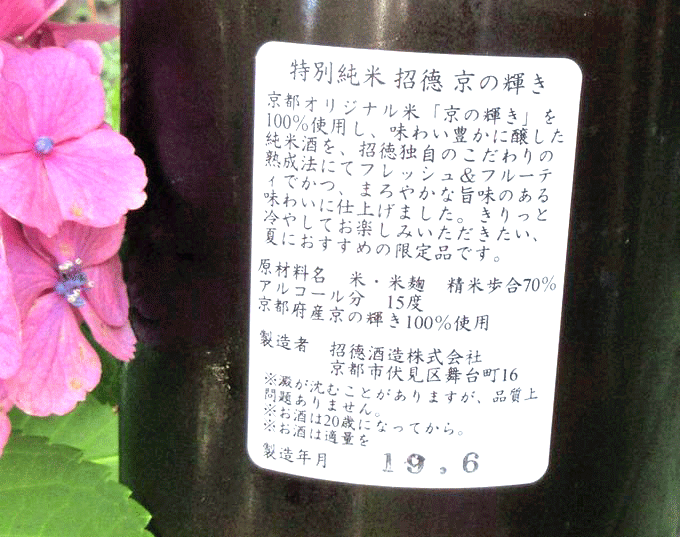 特別純米 招德 京の輝き
京都オリジナル米「京の輝き」を
100%使用し、味わい豊かに醸した
純米酒を、招徳独自のこだわりの
熟成法にてフレッシュ&フルーテ
ィでかつ、まろやかな旨味のある
味わいに仕上げました。きりっと
冷やしてお楽しみいただきたい、
夏におすすめの限定品です。
原材料名 米・米麹 精米歩合70%
アルコール分 15度
京都府産京の輝き100%使用
製造者 招德酒造株式会社
京都市伏見区舞台町16
※澱が沈むことがありますが、品質上
問題ありません。
※お酒は20歳になってから。
※お酒は適量を
製造年月 19.6